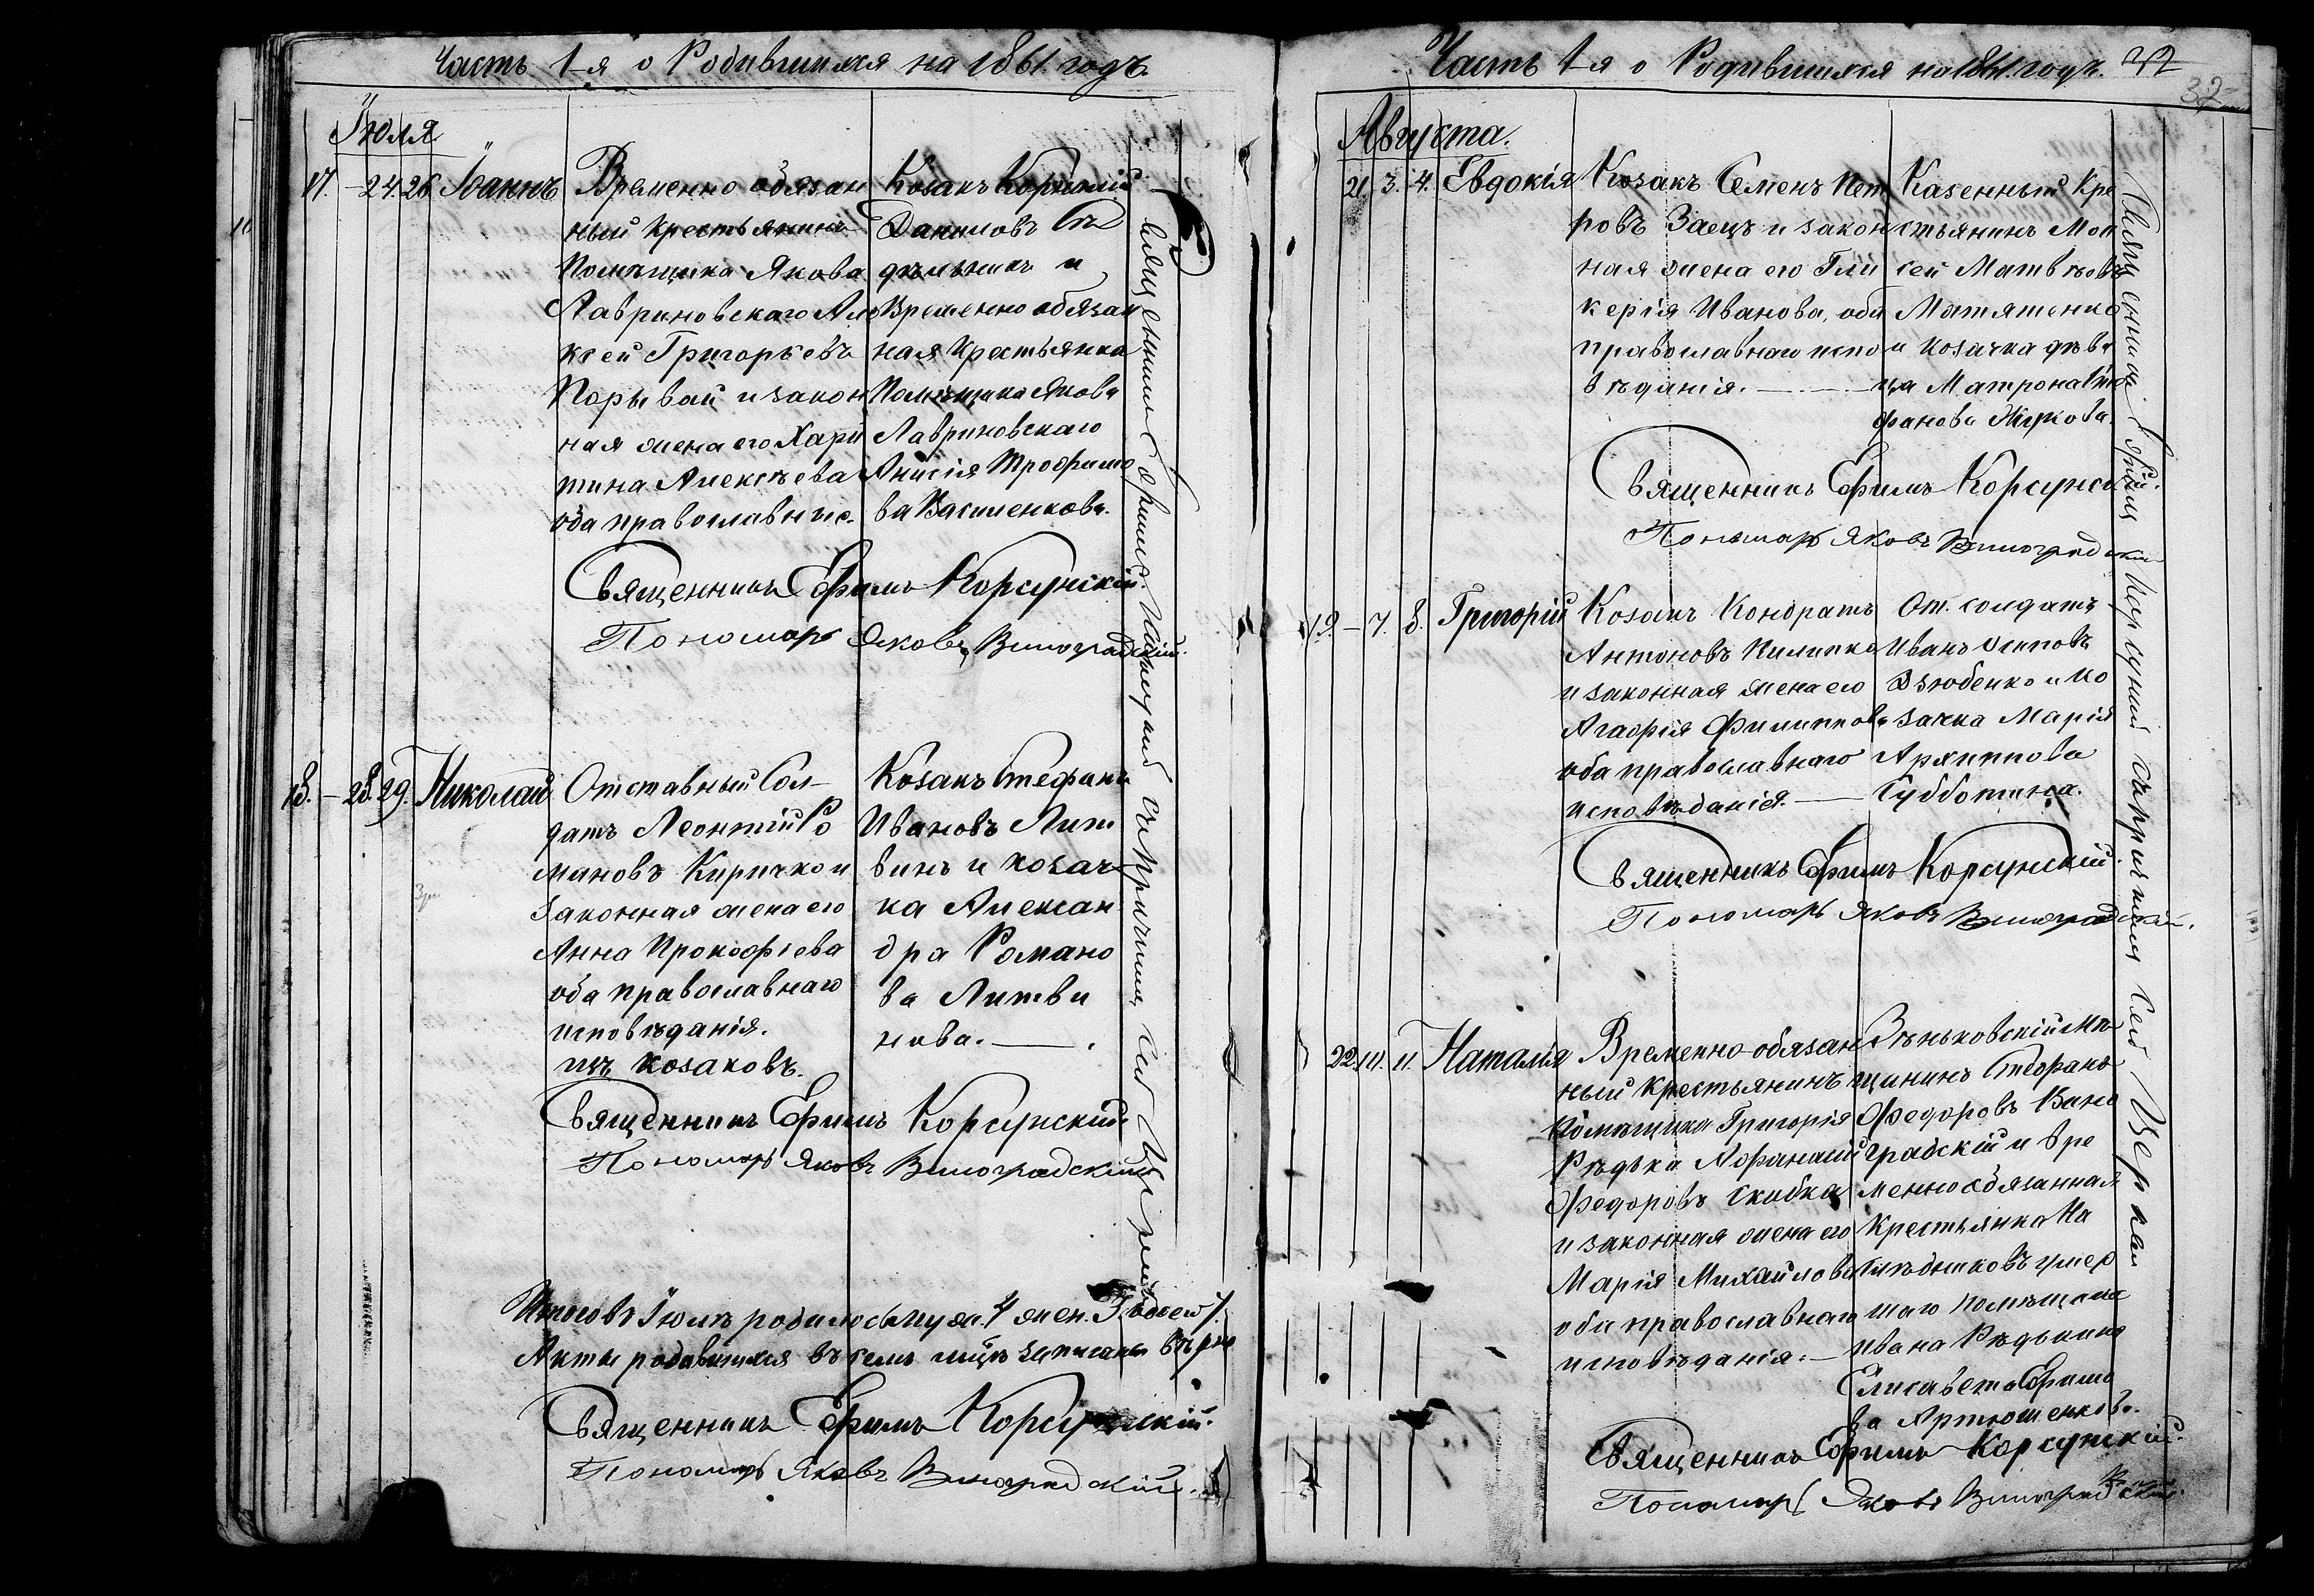 Часть 1-я о Родившихся на 1861. годъ.
Іюля
17. – 24. 26 Іоаннъ
Временно обязан
ный крестьянинъ
Помѣщика Якова
Лавриновскаго Але
ксей Григорьевъ
Порывай и закон
ная жена его Хари
тина Алексѣева
оба православные.
Козакъ Корнилій
Даниловъ
дѣльникъ и
Временно обязан
ная крестьянка
Помѣщика Якова
Лавриновскаго
Анисія Трофимо
ва Василенкова.
Священникъ Ефимъ Корсунскій
Пономарь Яковъ Виноградскій.
18. – 28. 29. Николай
Отставный Сол–
датъ Леонтій Ро
мановъ Киричко и
законная жена его
Анна Прокофіева
оба православнаго
исповѣданія.
изъ козаковъ.
Козакъ Стефанъ
Ивановъ Лит
винъ и козач
ка Алексан
дра Романо
ва Литви
нова. — .
Священникъ Ефимъ Корсунскій.
Пономарь Яковъ Виноградскій
Итого въ Іюлѣ родилось муж. 4 жен. 3 обоего 7.
Акты родившихся въ семъ мцѣ записаны вѣрно
Священникъ Ефимъ Корсунскій.
Пономарь Яковъ Виноградскій.
Священникъ Ефимъ Корсунскій съ причтомъ сей Церкви
Часть 1-я о Родившихся на 1861. годъ. 32
32
Августа.
21. 3. 4. Евдокія
Козакъ Семенъ Пет
ровъ Заецъ и закон
ная жена его Гли
керія Иванова, оба
православнаго испо
вѣданія. —
Казенный кре
стьянинъ Мои
сей Матвѣевъ
Матяшенко
и козачка дѣви
ца Матрона
фанова Жукова.
Священникъ Ефимъ Корсунскій.
Пономарь Яковъ Виноградскій
19. – 7. 8. Григорій
Козакъ Кондратъ
Антоновъ Пилипко
и законная жена его
Агафія Филиппова
оба православнаго
исповѣданія. —
От. солдатъ
Иванъ Осиповъ
Дзюбенко и ко
зачка Марія
Архиппова
Субботина.
Священникъ Ефимъ Корсунскій.
Пономарь Яковъ Виноградскій.
22. 10. 11. Наталія
Временно-обязан
ный крестьянинъ
помѣщика Григорія
Рѣдька Афанасій
Федоровъ Скибка
и законная жена его
Марія Михайлова
оба православнаго
исповѣданія. —
Зѣньковскій мѣ
щанинъ Стефанъ
Федоровъ Вино
градскій и вре
менно обязанная
крестьянка На
слѣдниковъ умер
шаго помѣщика
Ивана Рѣдькина
Елисавета Ефимо
ва Артюшенкова.
Священникъ Ефимъ Корсунскій.
Пономарь Яковъ Виноградскій.
Священникъ Ефимъ Корсунскій съ причтомъ сей Церкви